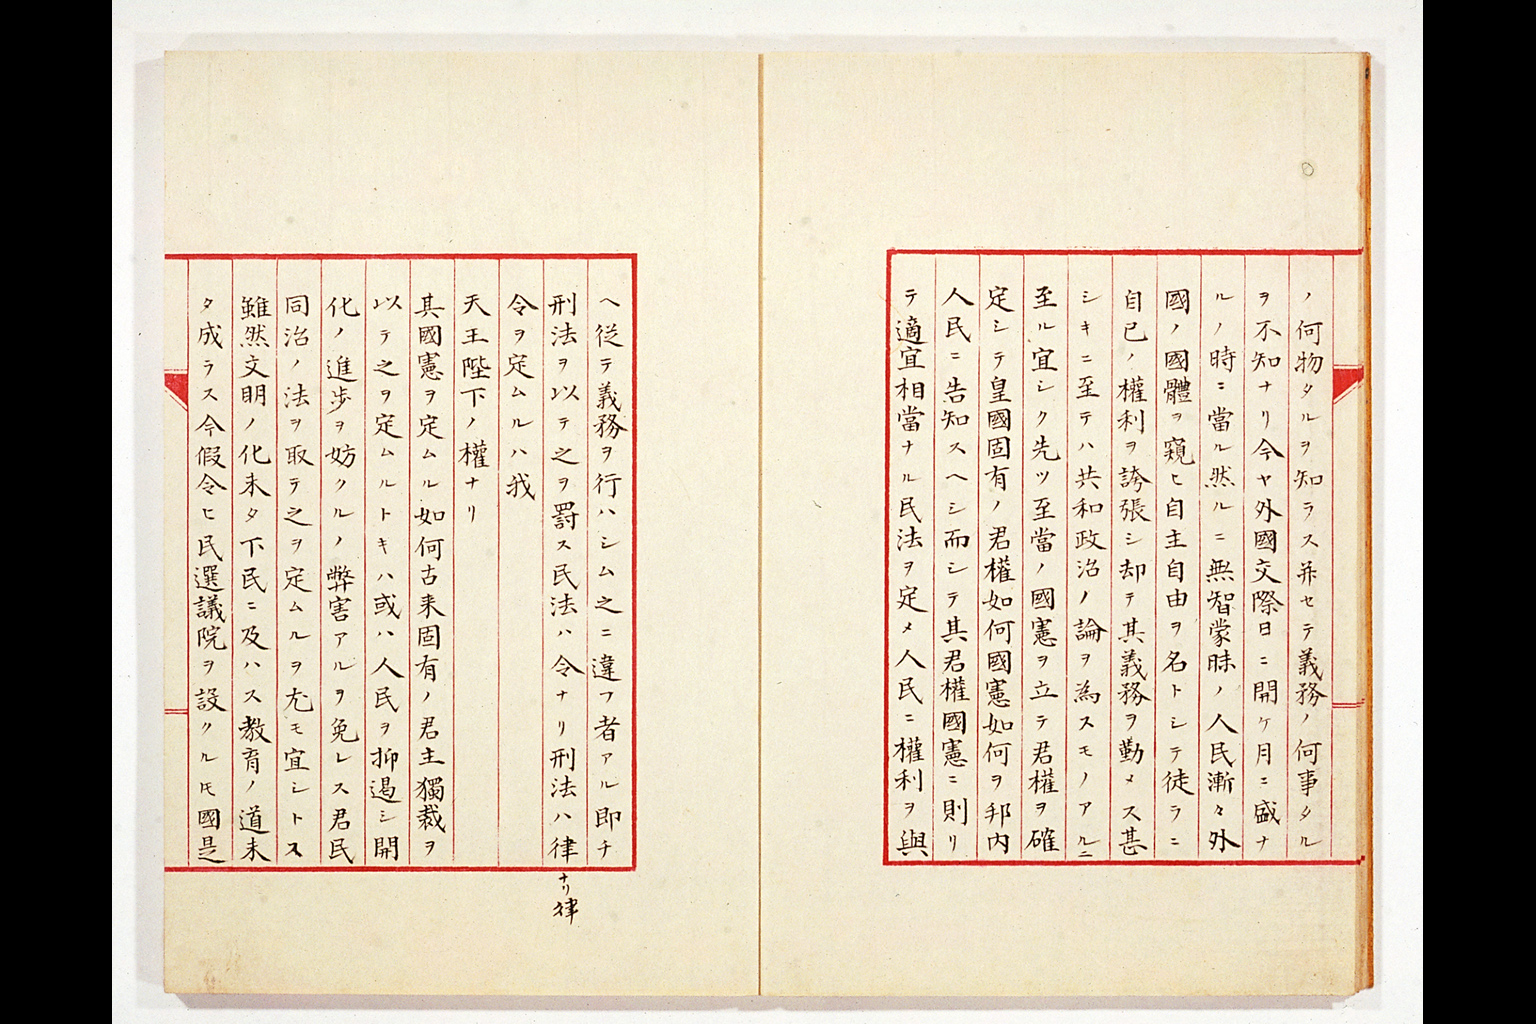 ノ何物タルヲ知ラス并セテ義務ノ何事タル
ヲ不知ナリ今ヤ外國交際日ニ開ケ月ニ盛ナ
ルノ時ニ當ル然ルニ無智蒙昧ノ人民漸々外
國ノ國體ヲ窺ヒ自主自由ヲ名トシテ徒ラニ
自己ノ權利ヲ誇張シ却テ其義務ヲ勤メス甚
シキニ至テハ共和政治ノ論ヲ為スモノアルニ
至ル宜シク先ツ至當ノ國憲ヲ立テ君權ヲ確
定シテ皇國固有ノ君權如何國憲如何ヲ邦内
人民ニ告知スヘシ而シテ其君權國憲ニ則リ
テ適宜相當ナル民法ヲ定メ人民ニ權利ヲ與
ヘ従テ義務ヲ行ハシム之ニ違フ者アル即チ
刑法ヲ以テ之ヲ罰ス民法ハ令ナリ刑法ハ律ナリ律
令ヲ定ムルハ我
天王陛下ノ權ナリ
其國憲ヲ定ムル如何古来固有ノ君主獨裁ヲ
以テ之ヲ定ムルトキハ或ハ人民ヲ抑遏シ開
化ノ進歩ヲ妨クルノ弊害アルヲ免レス君民
同治ノ法ヲ取テ之ヲ定ムルヲ尤モ宜シトス
雖然文明ノ化未タ下民ニ及ハス教育ノ道未
タ成ラス今假令ヒ民選議院ヲ設クルモ國是